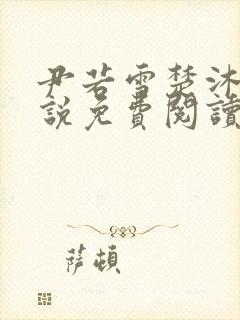 尹若雪楚沐
說免費閱讀
薩頓